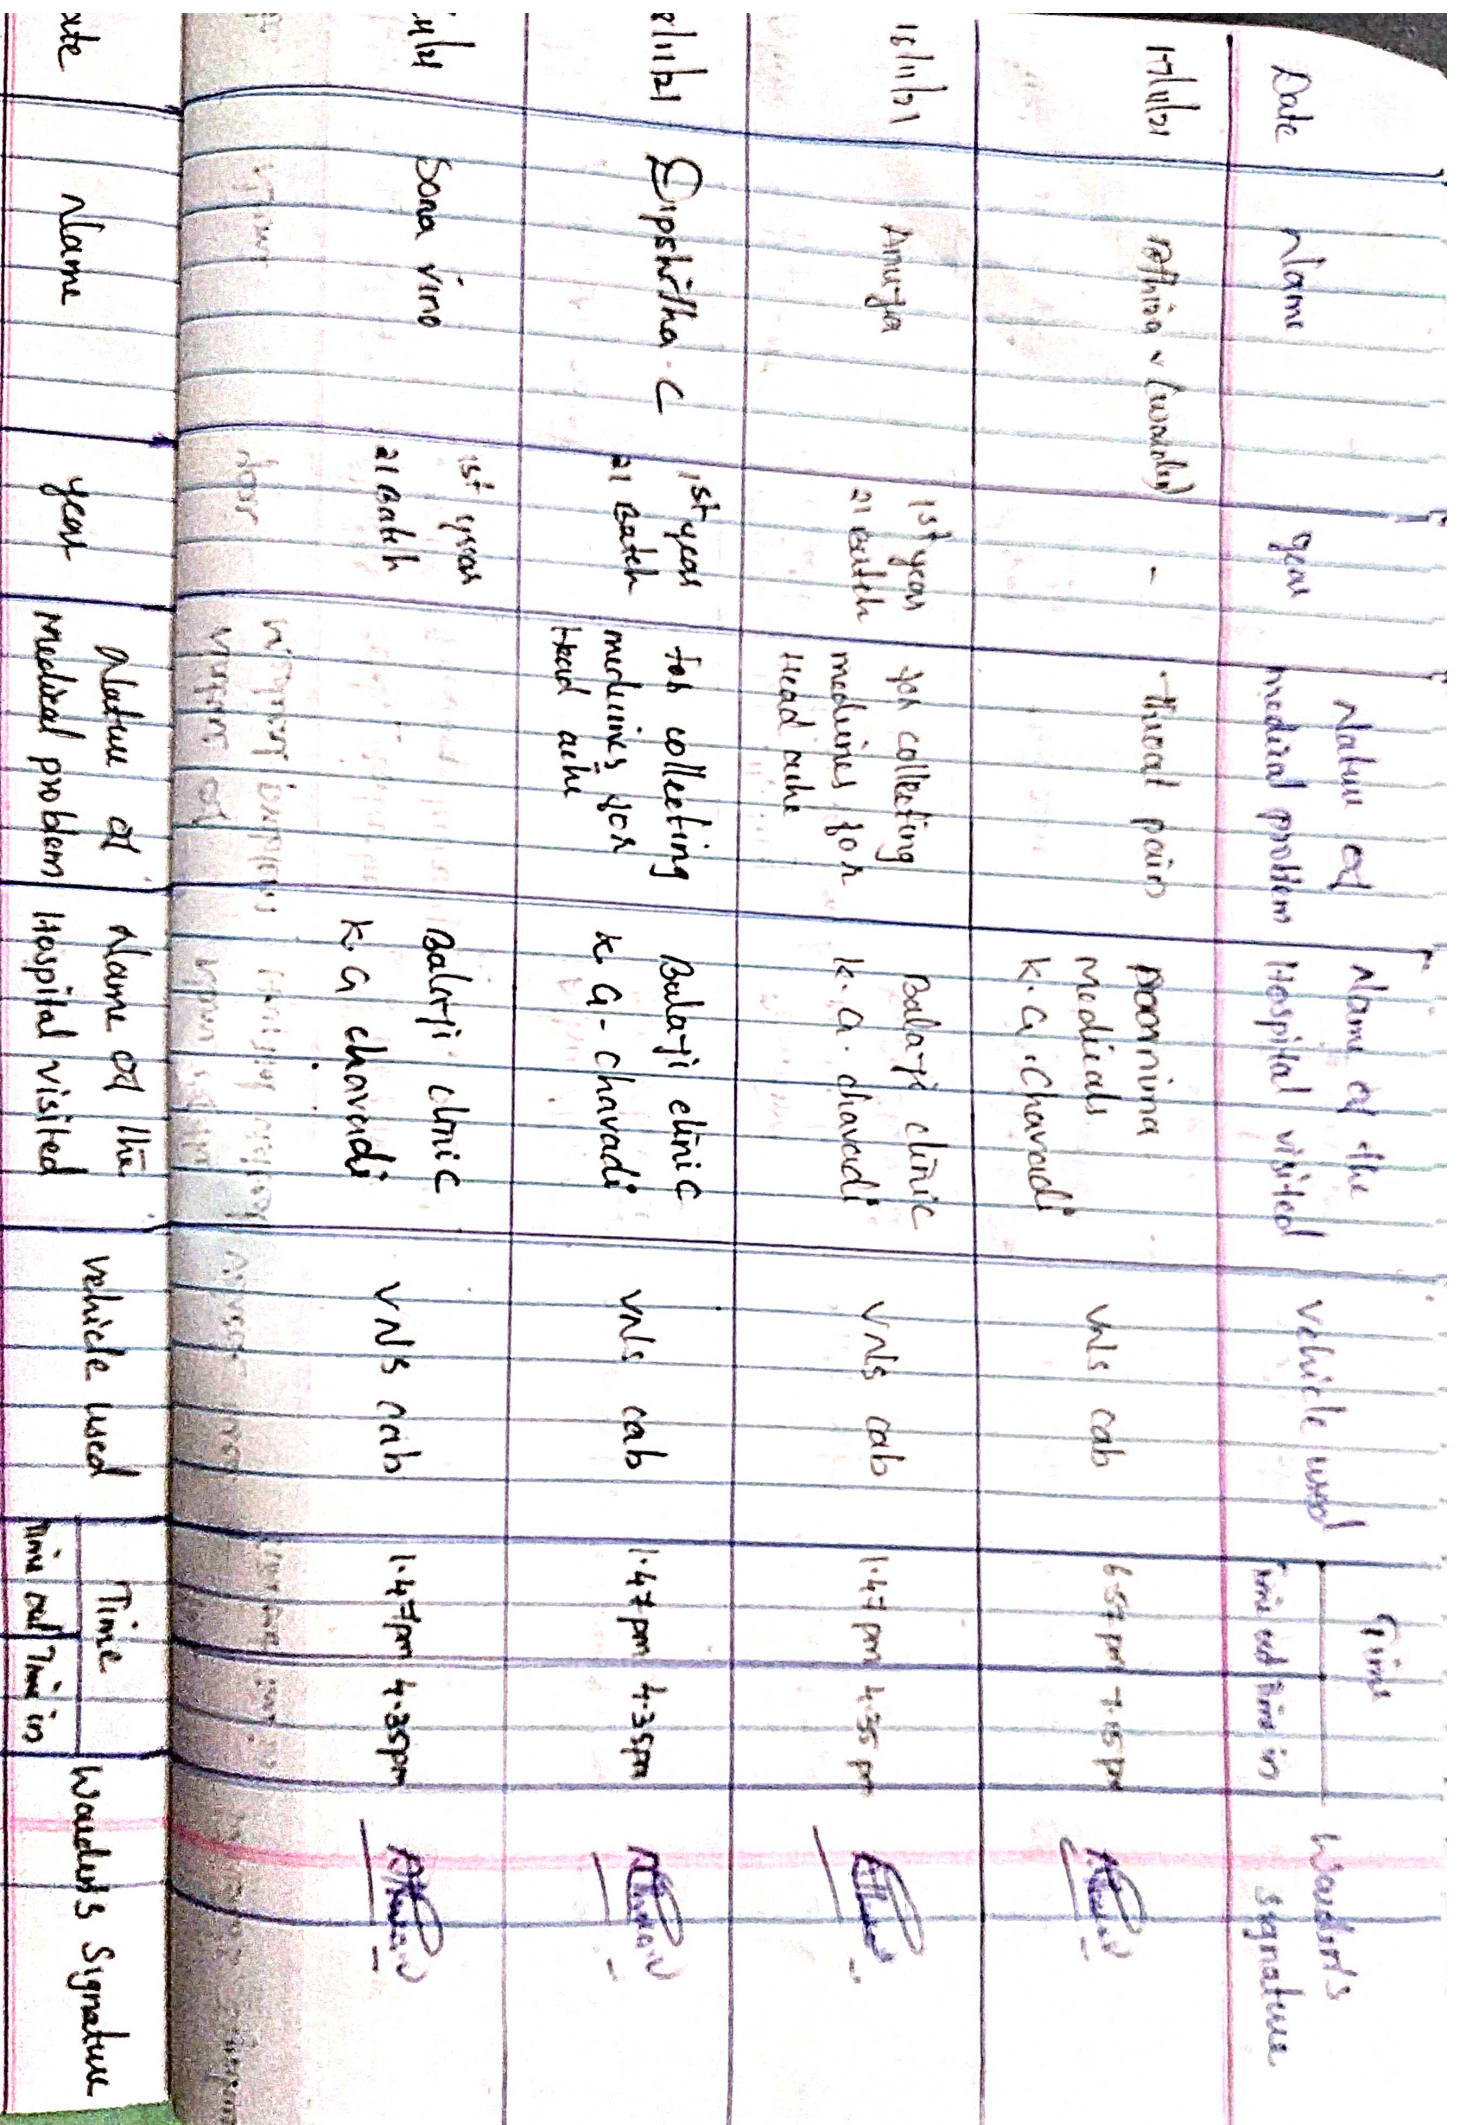 Date Name year Nature of medical problem Name of the Hospital visited vehicle used Time Time out Time in Warden's Signature
17/11/21 Athira v (warden) - Throat pain Poornima Medicals K.G. Chavadi VNS cab 6.57 pm 7.15 pm
18/11/21 Anuja 1st year 21 Batch for collecting medicines for Head ache Balaji clinic K.G. chavadi VNS cab 1.47 pm 4.35 pm
8/11/21 Dipshitha. C 1st year 21 Batch for collecting medicines for Head ache Balaji clinic K.G. chavadi VNS cab 1.47 pm 4.35pm
11/21 Sona vino 1st year 21 Batch Balaji clinic K.G chavadi VNS cab 1.47pm 4.35pm
ate Name year Nature of Medical problem Name of the Hospital visited vehicle used Time Time out Time in Warden's Signature